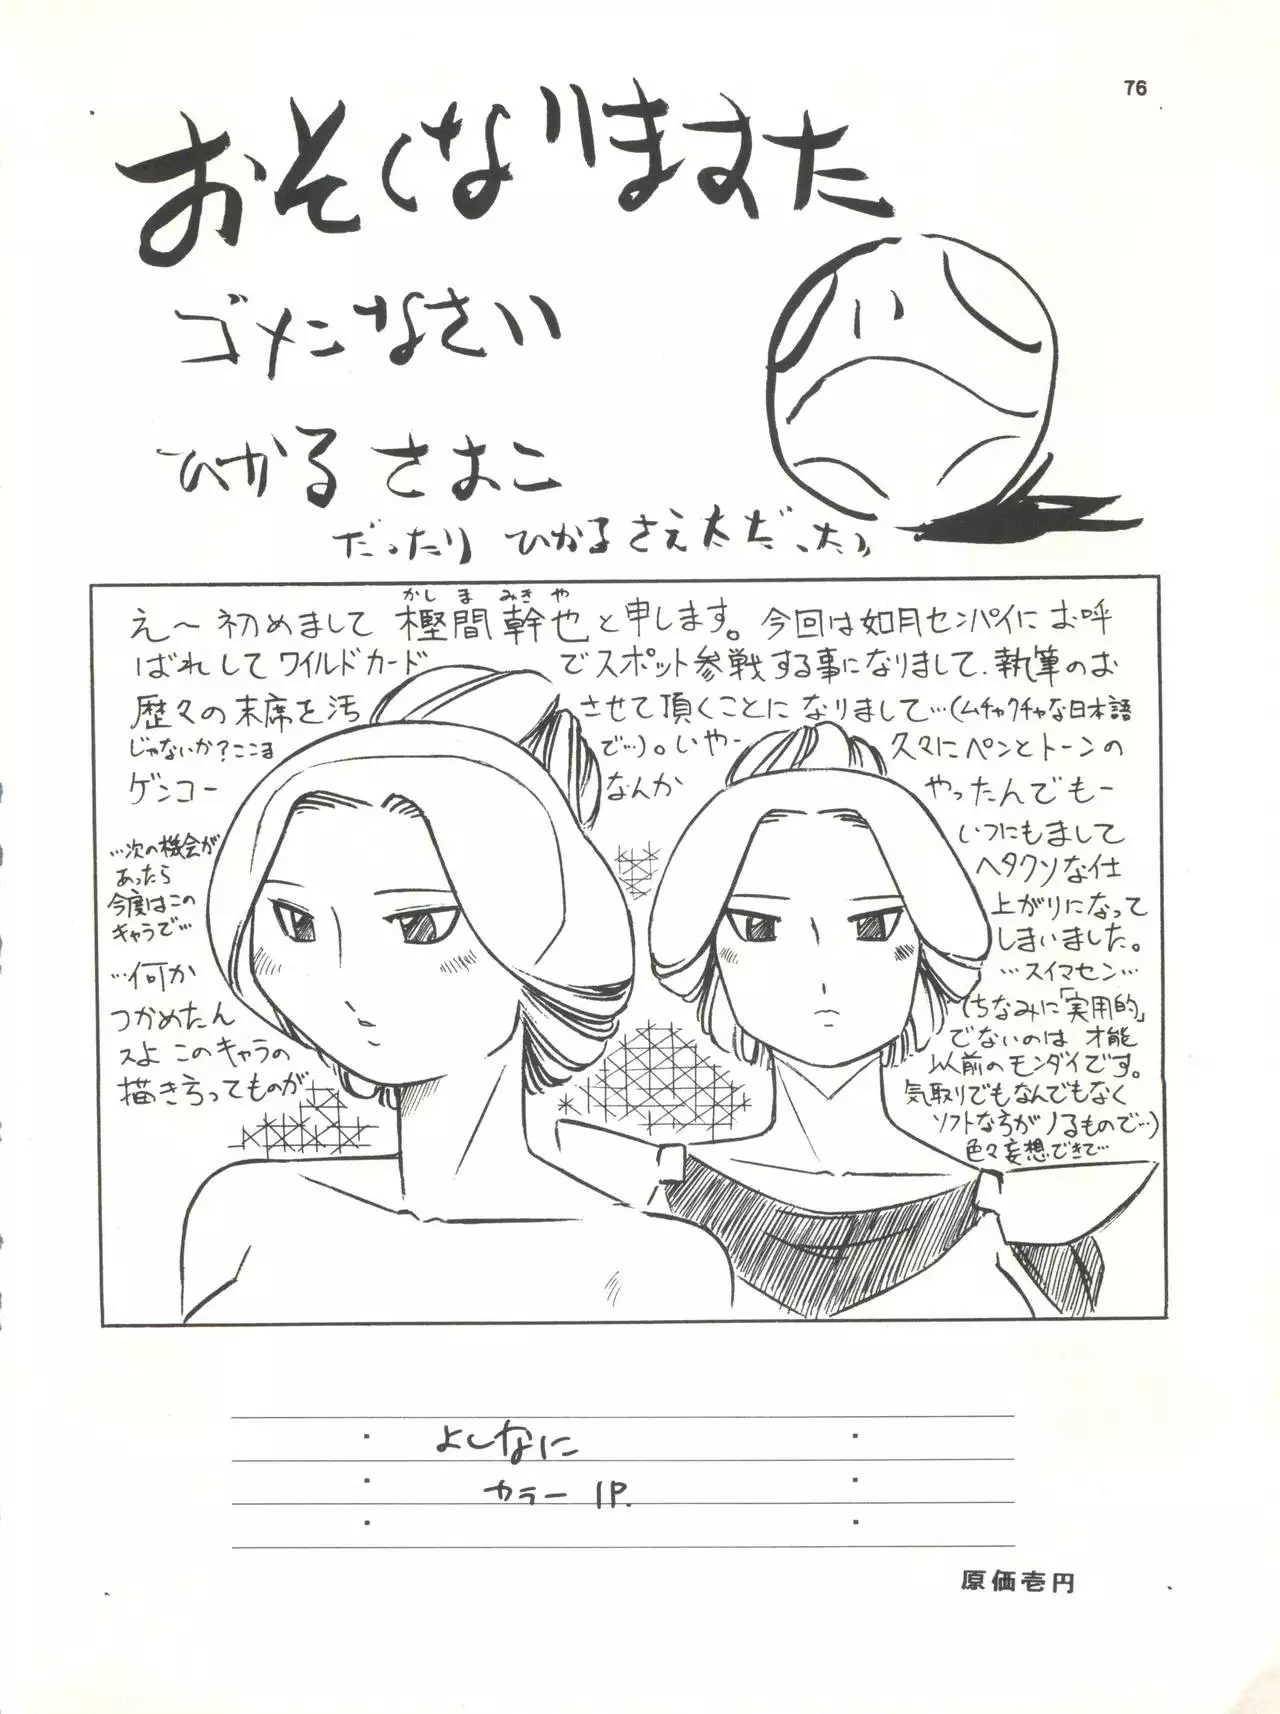 76
おそくなりますた
ゴメンなさい
ひかる さおこ
だったり ひかるさえ太だったり
かしま みきや
え〜初めまして 樫間 幹也と申します。今回は如月センパイにお呼
ばれしてワイルドカードでスポット参戦する事になりまして、執筆のお
歴々の末席を汚させて頂くことになりまして…(ムチャクチャな日本語
じゃないか?ここまで…)。いやー久々にペンとトーンの
ゲンコーなんかやったんでもー
いつにもまして
ヘタクソな仕
上がりになって
しまいました。
…スイマセン…
(ちなみに「実用的」
でないのは 才能
以前のモンダイです。
気取りでもなんでもなく
ソフトな方がノるもので…)
色々妄想できて…
…次の機会が
あったら
今度はこの
キャラで…
…何か
つかめたん
スよ このキャラの
描き方ってものが
よしなに
カラー 1P.
原価壱円